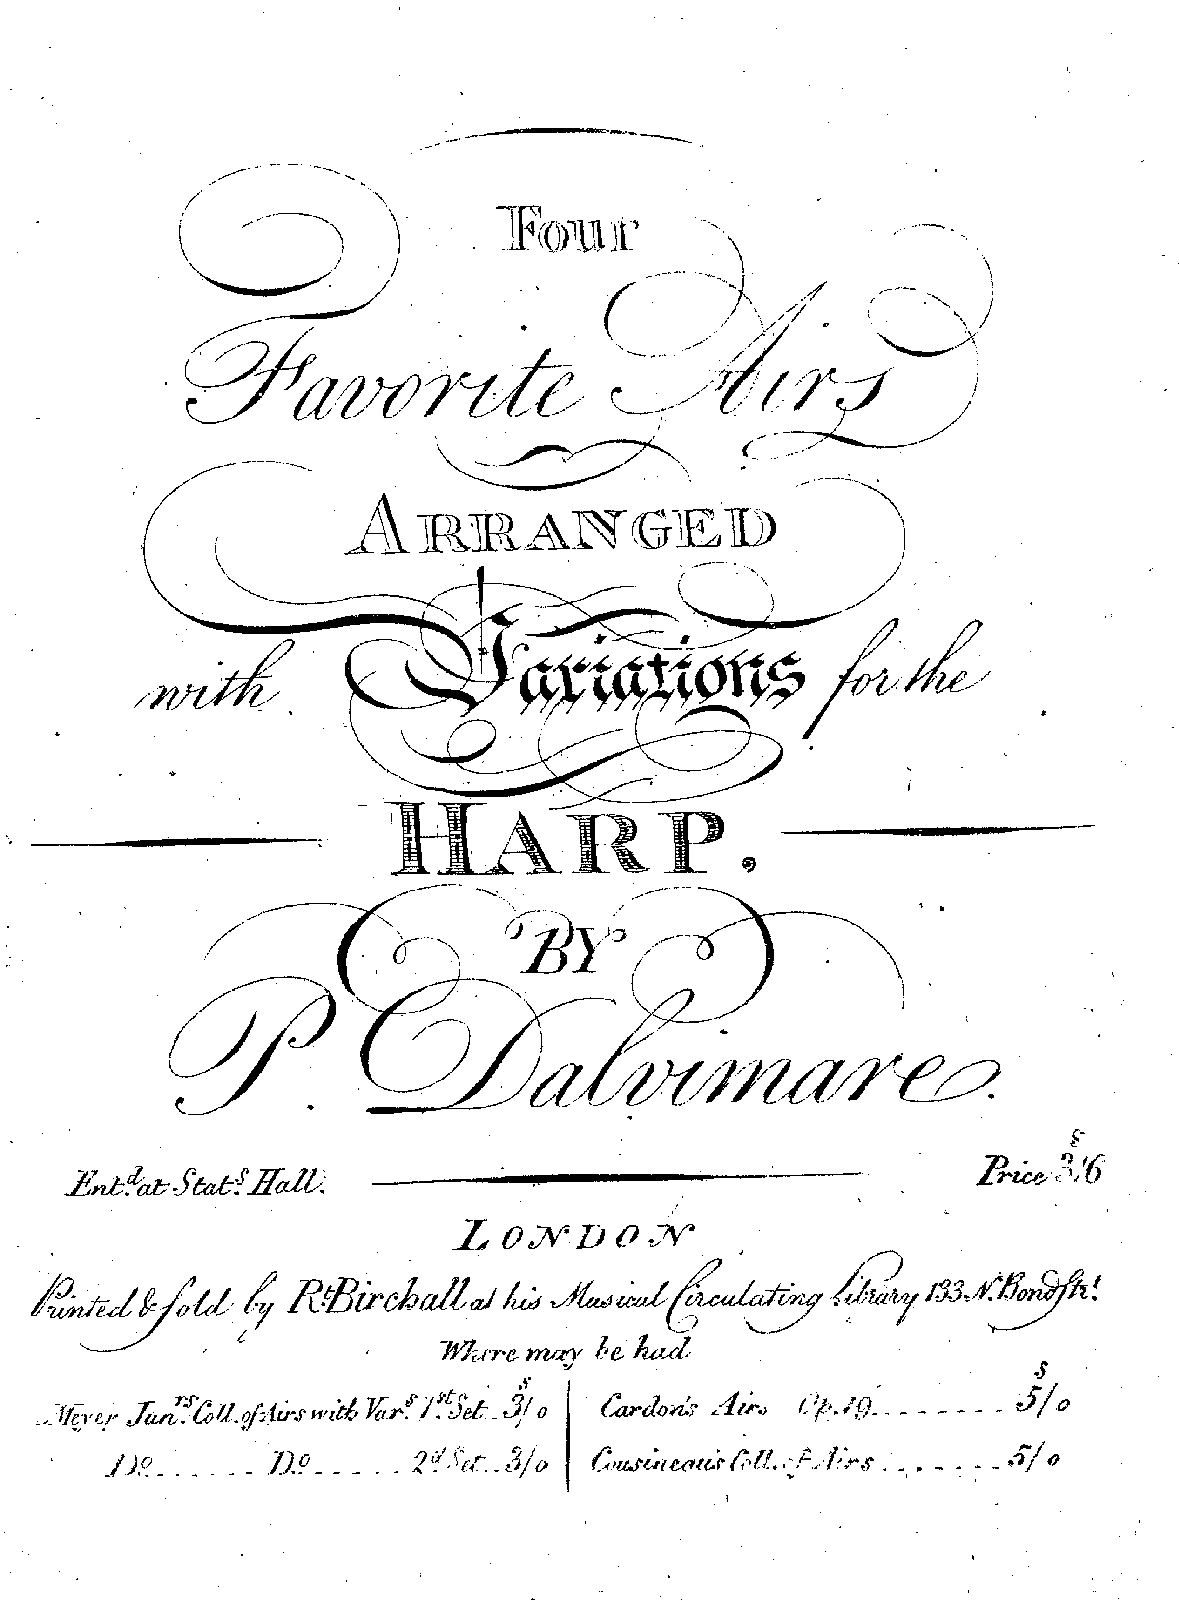 Four
Favorite Airs
ARRANGED
with Variations for the
HARP.
BY
P. Dalvimare.
Ent.d at Stat.s Hall. Price 3s/6
LONDON
Printed & Sold by R.t Birchall at his Musical Circulating Library 133 N. Bond Str.t
Where may be had
Meyer Jun.rs Coll. of Airs with Var.s 1.st Set 3s/0
Do. Do. 2d Set 3/0
Cardon's Airs Op. 19 5s/0
Cousineau's Coll. of Airs 5/0